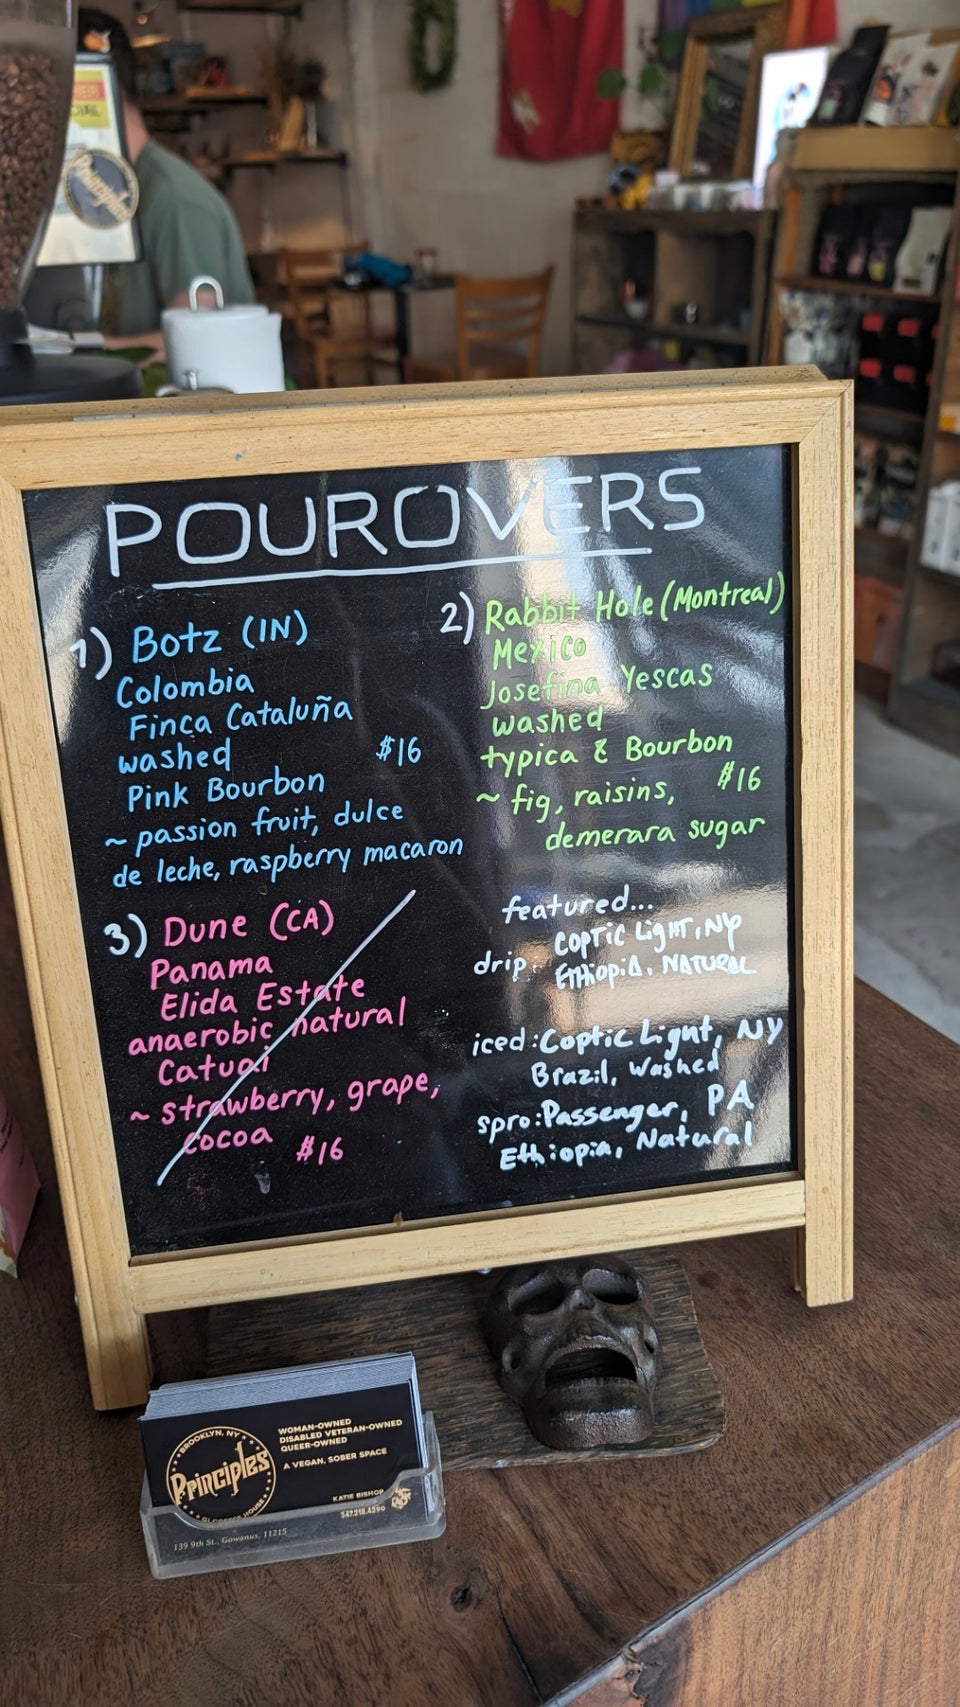 Principles
POUROVERS
1) Botz (IN)
Colombia
Finca Cataluña
washed $16
Pink Bourbon
~ passion fruit, dulce
de leche, raspberry macaron
2) Rabbit Hole (Montreal)
Mexico
Josefina Yescas
washed
typica & Bourbon
~ fig, raisins, $16
demerara sugar
3) Dune (CA)
Panama
Elida Estate
anaerobic natural
Catuai
~ strawberry, grape,
cocoa $16
featured...
drip: Coptic Light, NY
Ethiopia, NATURAL
iced: Coptic Light, NY
Brazil, Washed
spro: Passenger, PA
Ethiopia, Natural
BROOKLYN, NY
Principles
GI COFFEE HOUSE
WOMAN-OWNED
DISABLED VETERAN-OWNED
QUEER-OWNED
A VEGAN, SOBER SPACE
KATIE BISHOP
347.218.4290
139 9th St., Gowanus, 11215